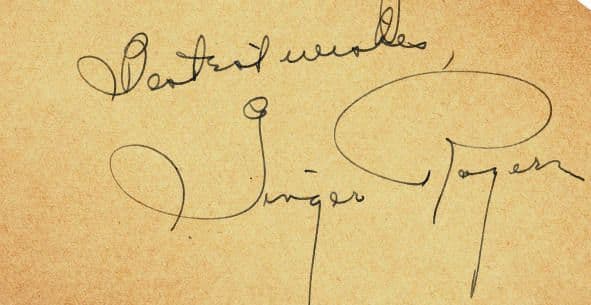 Best wishes,
Ginger Rogers